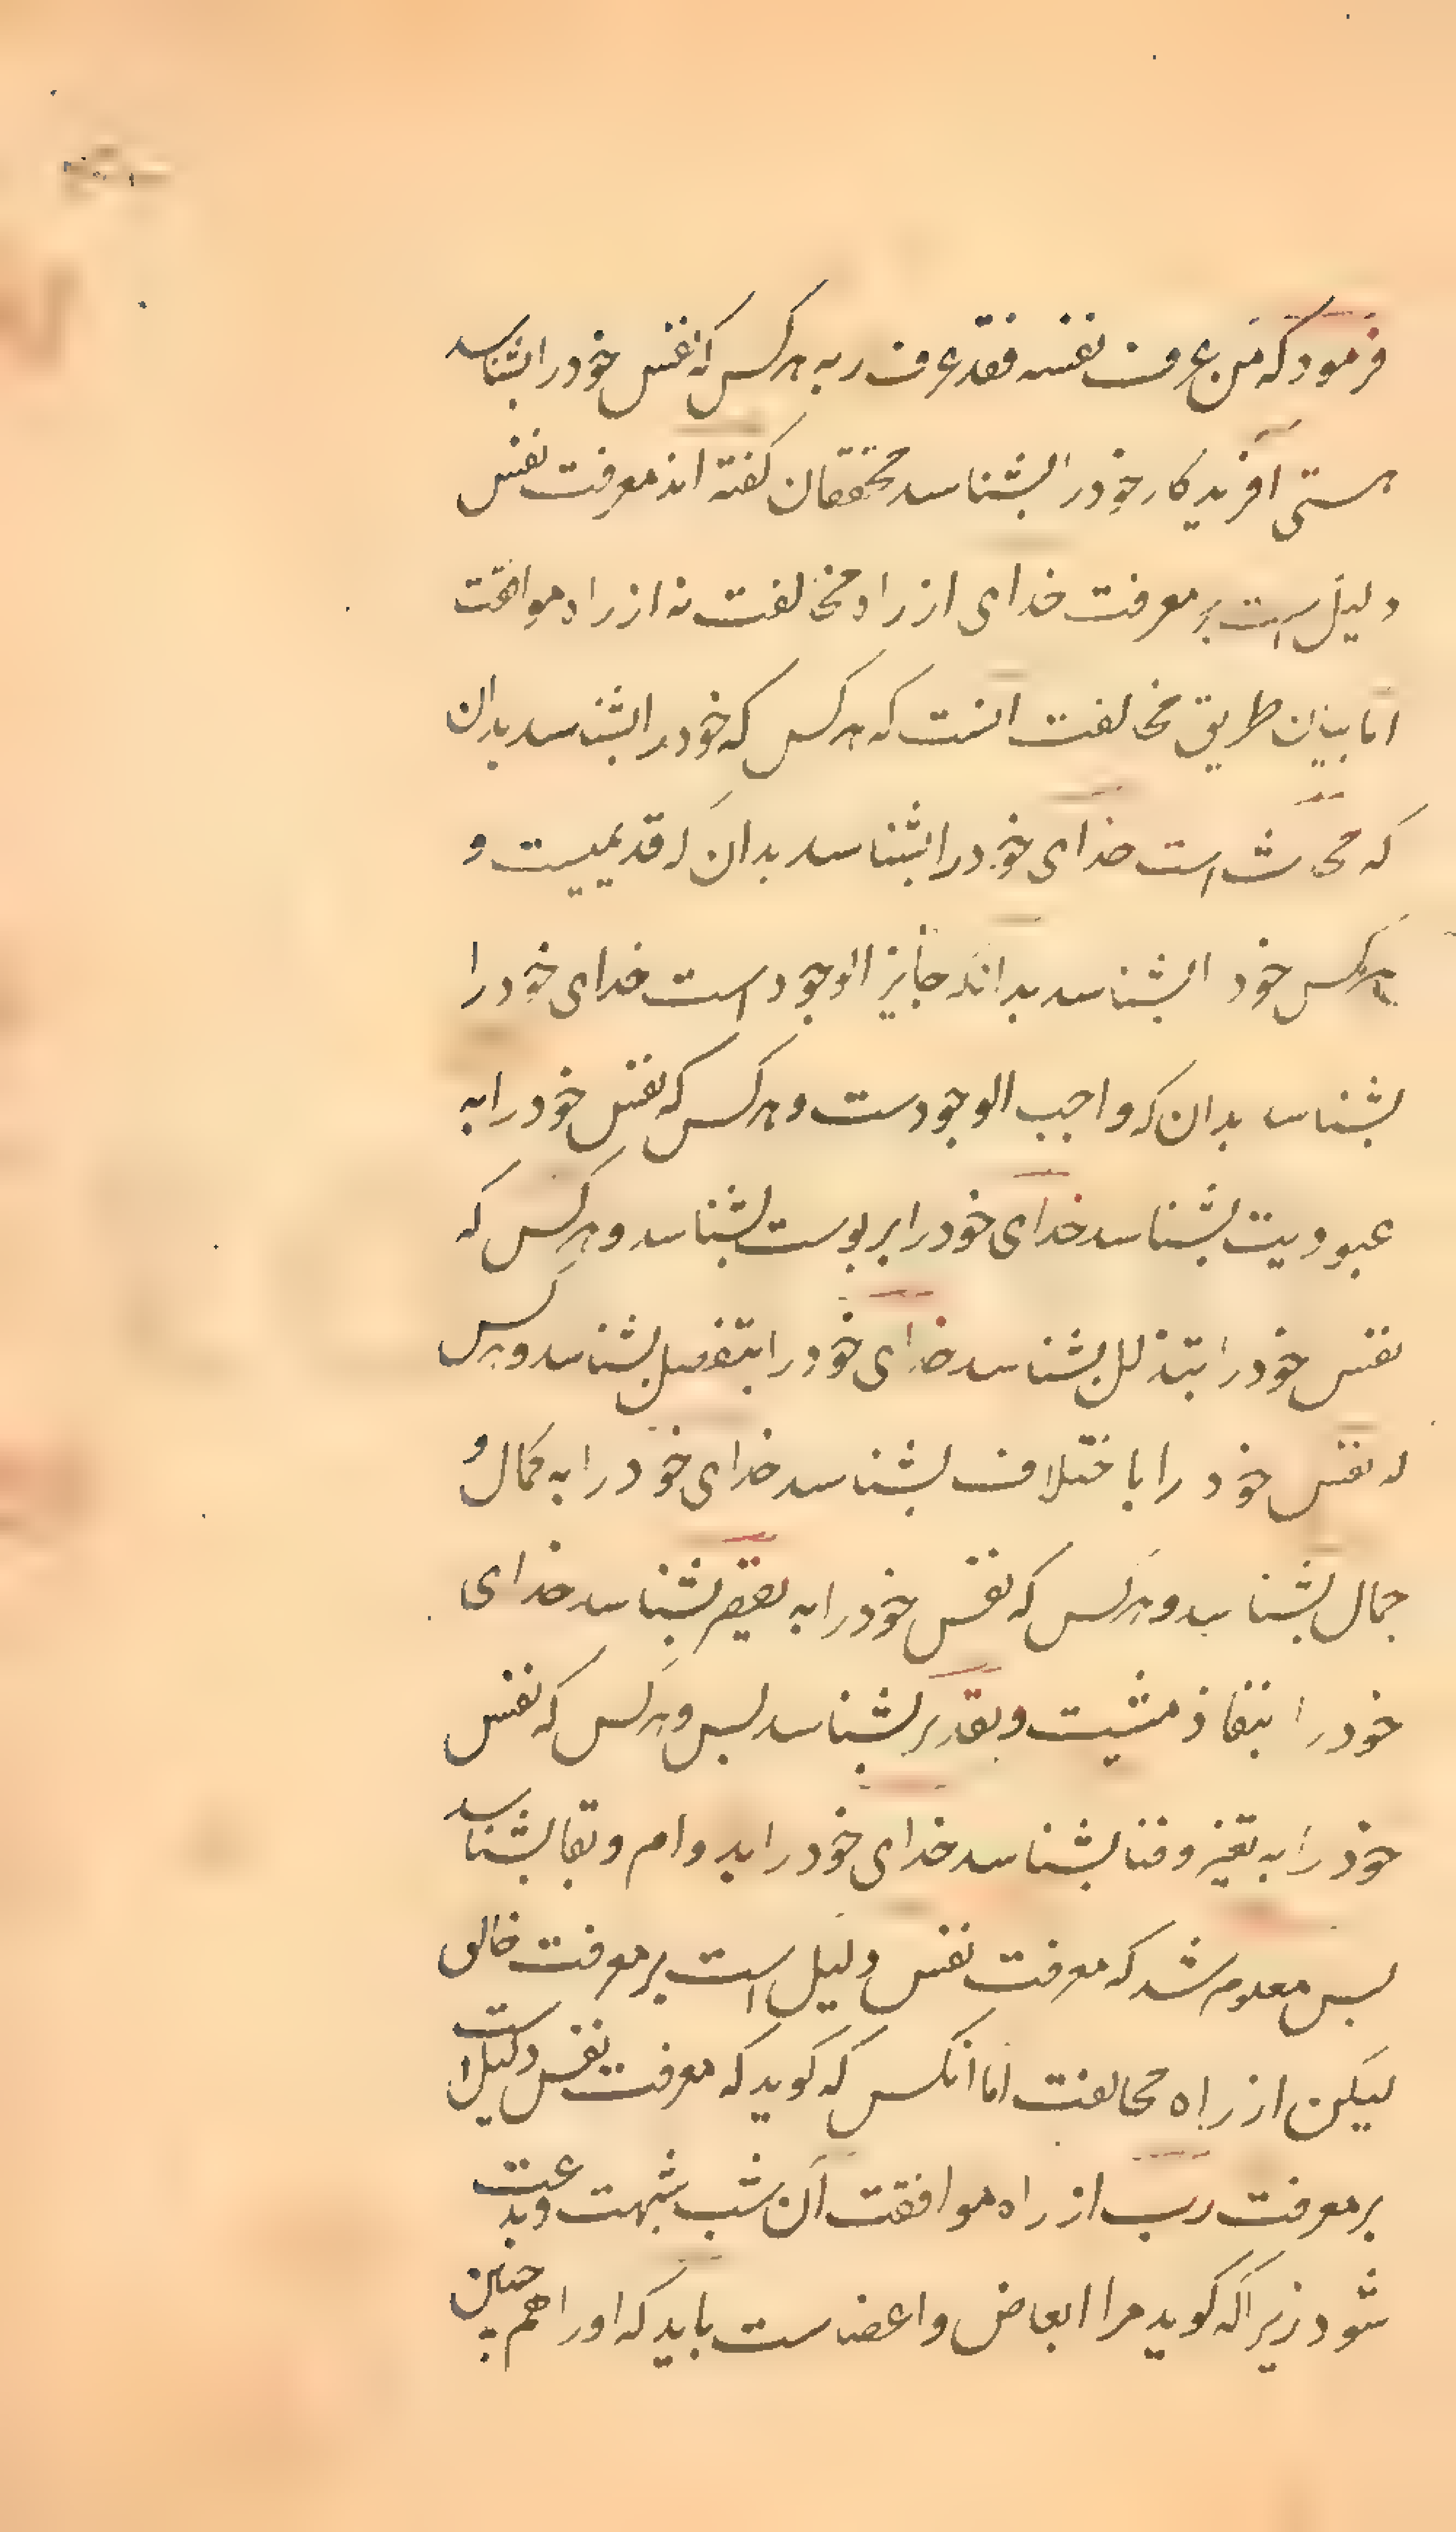 فرمود که من عرف نفسه فقد عرف ربه هرکس که نفس خود را بشناسد
هستی آفریدکار خود را بشناسد محققان کفته اند معرفت نفس
دلیل است بر معرفت خدای از راه مخالفت نه از راه موافقت
اما بیان طریق مخالفت انست که هرکس که خود را بشناسد بدان
که محدث است خدای خود را بشناسد بدان که قدیمیست و
هرکس خود را بشناسد بدانکه جایز الوجود است خدای خود را
بشناسد بدان که واجب الوجودست و هرکس که نفس خود را به
عبودیت بشناسد خدای خود را بربوبیت بشناسد و هرکس که
نفس خود را بتذلل بشناسد خدای خود را بتفضل بشناسد و هرکس
که نفس خود را باختلاف بشناسد خدای خود را به کمال و
جمال بشناسد و هرکس که نفس خود را به تقصیر بشناسد خدای
خود را بنفاذ مشیت و تقدیر بشناسد پس و هرکس که نفس
خود را به تغیر و فنا بشناسد خدای خود را بدوام و بقا بشناسد
پس معلوم شد که معرفت نفس دلیل است بر معرفت خالق
لیکن از راه مخالفت اما انکس که کوید که معرفت نفس دلیل است
بر معرفت رب از راه موافقت آن شب شبهت و بدعت
شود زیرا که کوید مرا ابعاض و اعضاست باید که او را هم چنین